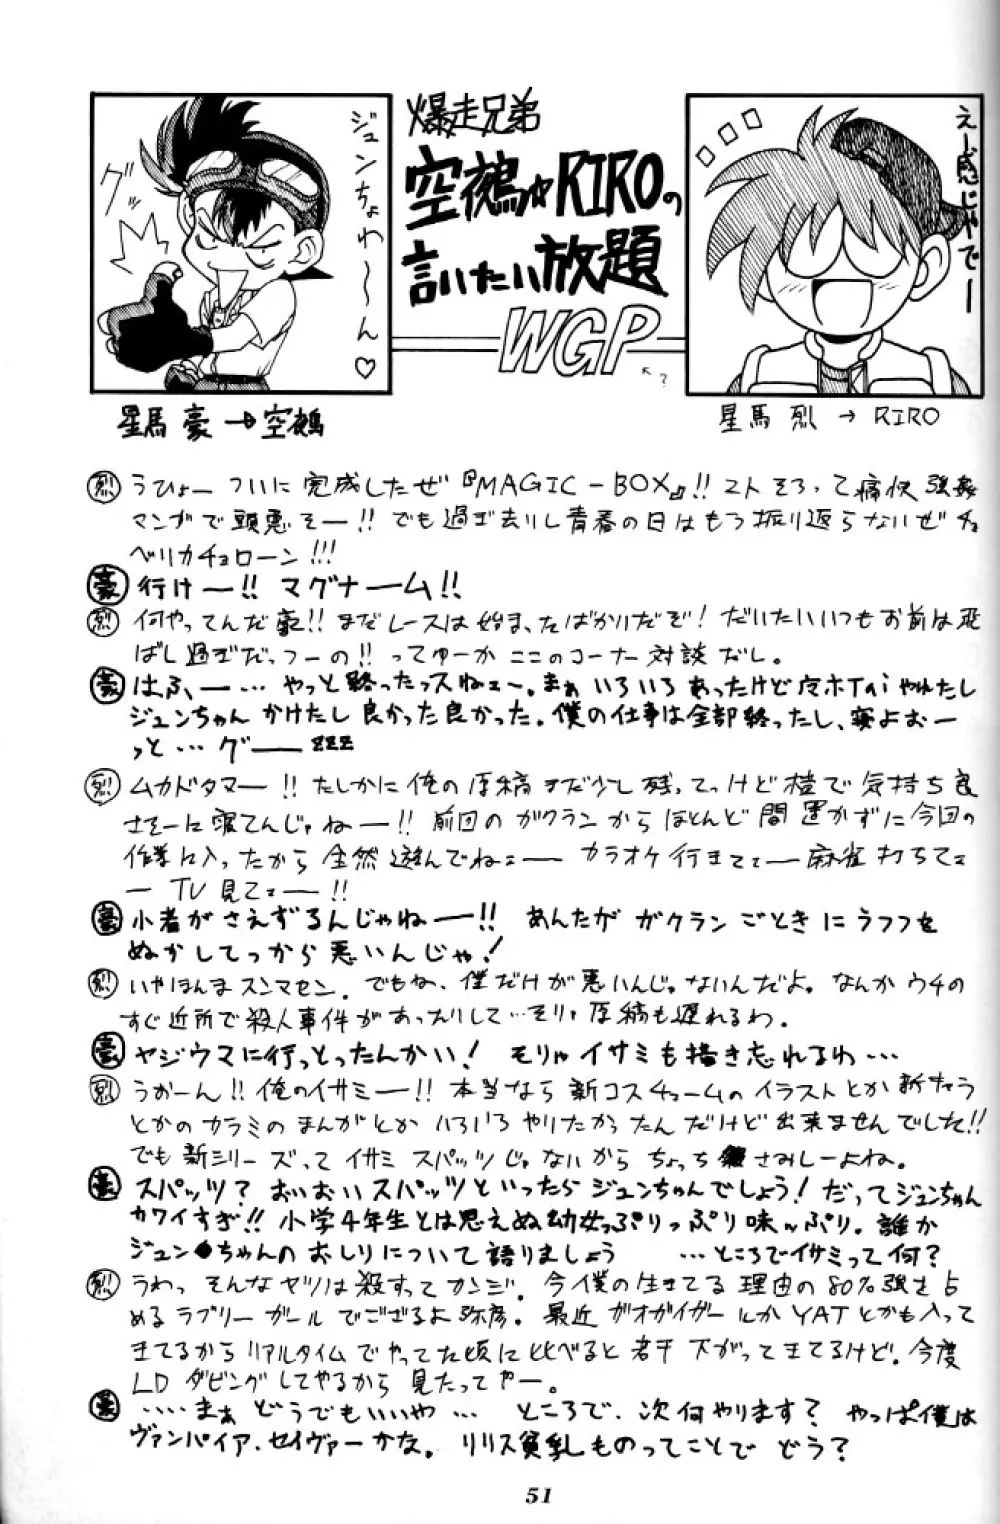 ジュンちゃわ～～ん♡
グッ
爆走兄弟
空鵺☆RIROの
言いたい放題
WGP
?
えー感じやでー
星馬 豪→空鵺
星馬 烈→RIRO
烈 うひょー ついに完成したぜ『MAGIC-BOX』!! ストそろって痛快強姦
マンガで頭悪そー!! でも過ぎ去りし青春の日はもう振り返らないぜチョ
ベリカチョローン!!!
豪 行けー!! マグナーム!!
烈 何やってんだ豪!! まだレースは始まったばかりだぞ! だいたいいつもお前は飛
ばし過ぎだっつーの!! ってゆーかここのコーナー対談だし。
豪 はふぅー… やっと終ったっスねェ～。まぁいろいろあったけど
ジュンちゃんかけたし良かった良かった。僕の仕事は全部終ったし、寝よおー
っと… グーーzzz
烈 ムカドタマー!! たしかに俺の原稿まだ少し残ってっけど横で気持ち良
さそーに寝てんじゃねー!! 前回のガクランからほとんど間置かずに今回の
作業に入ったから全然遊んでねェー カラオケ行きてェー麻雀打ちてェ
ー TV見てェー!!
豪 小者がさえずるんじゃねー!! あんたがガクランごときにうつつを
ぬかしてっから悪いんじゃ!
烈 いやほんまスンマセン。でもね、僕だけが悪いんじゃないんだよ。なんかウチの
すぐ近所で殺人事件があったりして…そりゃ原稿も遅れるわ。
豪 ヤジウマに行っとったんかい! そりゃイサミも描き忘れるわ…
烈 うおーん!! 俺のイサミー!! 本当なら新コスチュームのイラストとか新キャラ
とかのカラミのまんがとかいろいろやりたかったんだけど出来ませんでした!!
烈 うわっ そんなヤツは殺すってカンジ。今僕の生きてる理由の80%強を占
めるラブリーガールでござるよ弥彦。最近ガオガイガーとかYATとかも入って
きてるからリアルタイムでやってた頃に比べると若干下がってきてるけど。今度
LDダビングしてやるから見たってやー。
豪 ‥‥まぁどうでもいいや… ところで、次何やります? やっぱ僕は
ヴァンパイア・セイヴァーかな。
51